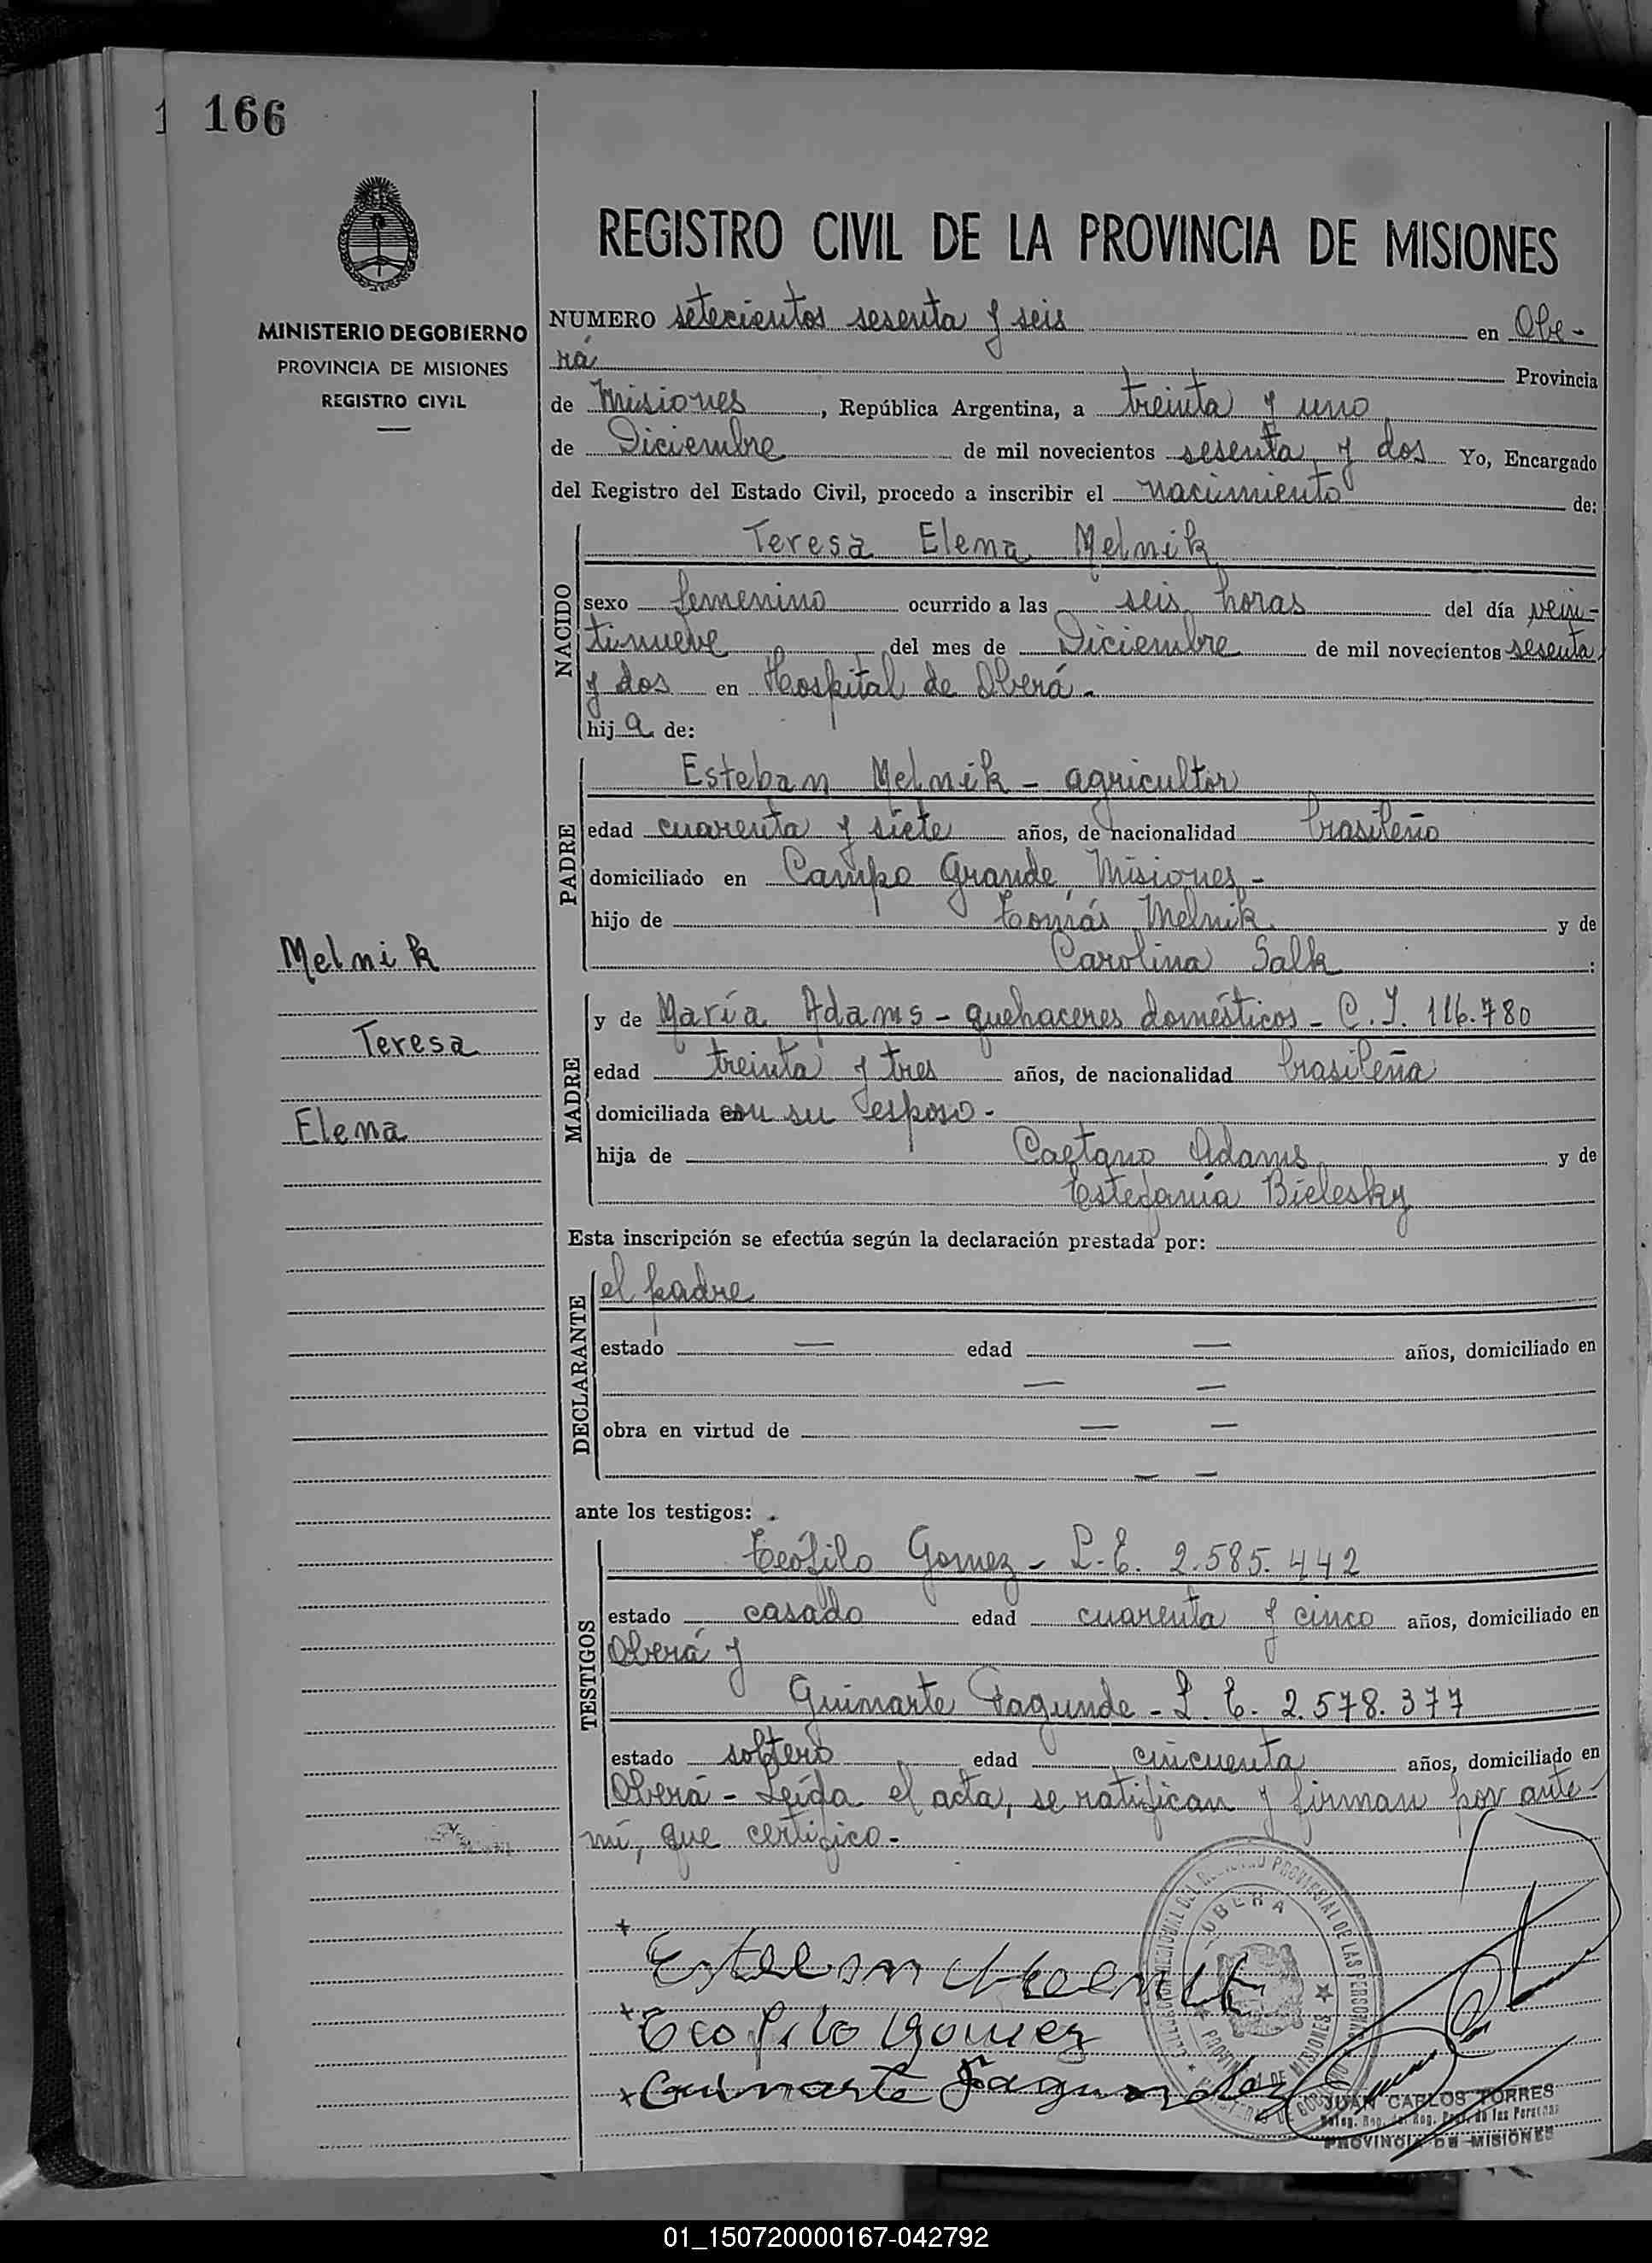 166
MINISTERIO DE GOBIERNO
PROVINCIA DE MISIONES
REGISTRO CIVIL
Melnik
Teresa
Elena
REGISTRO CIVIL DE LA PROVINCIA DE MISIONES
NUMERO setecientos sesenta y seis en Obe-
rá Provincia
de Misiones, República Argentina, a treinta y uno
de Diciembre de mil novecientos sesenta y dos Yo, Encargado
del Registro del Estado Civil, procedo a inscribir el nacimiento de:
NACIDO
Teresa Elena Melnik
sexo femenino ocurrido a las seis horas del día vein-
tinueve del mes de Diciembre de mil novecientos sesenta
y dos en Hospital de Oberá.-
hija de:
PADRE
Esteban Melnik - agricultor
edad cuarenta y siete años, de nacionalidad brasileño
domiciliado en Campo Grande, Misiones.-
hijo de Tomás Melnik y de
Carolina Salk :
MADRE
y de María Adams - quehaceres domésticos - C.I. 116.780
edad treinta y tres años, de nacionalidad brasileña
domiciliada con su esposo.-
hija de Caetano Adams y de
Estefanía Bielesky
Esta inscripción se efectúa según la declaración prestada por:
DECLARANTE
el padre
estado — edad — años, domiciliado en
— —
obra en virtud de — —
— —
ante los testigos:
TESTIGOS
Teófilo Gomez - L.E. 2.585.442
estado casado edad cuarenta y cinco años, domiciliado en
Oberá y
Guimarte Fagunde - L.E. 2.578.377
estado soltero edad cincuenta años, domiciliado en
Oberá - Leída el acta, se ratifican y firman por ante
mí, que certifico.-
+
Esteban Melnik
+ Teofilo Gomez
+ Guimarte Fagundez
OBERA
PROVINCIA DE MISIONES
JUAN CARLOS TORRES
PROVINCIA DE MISIONES
01_150720000167-042792